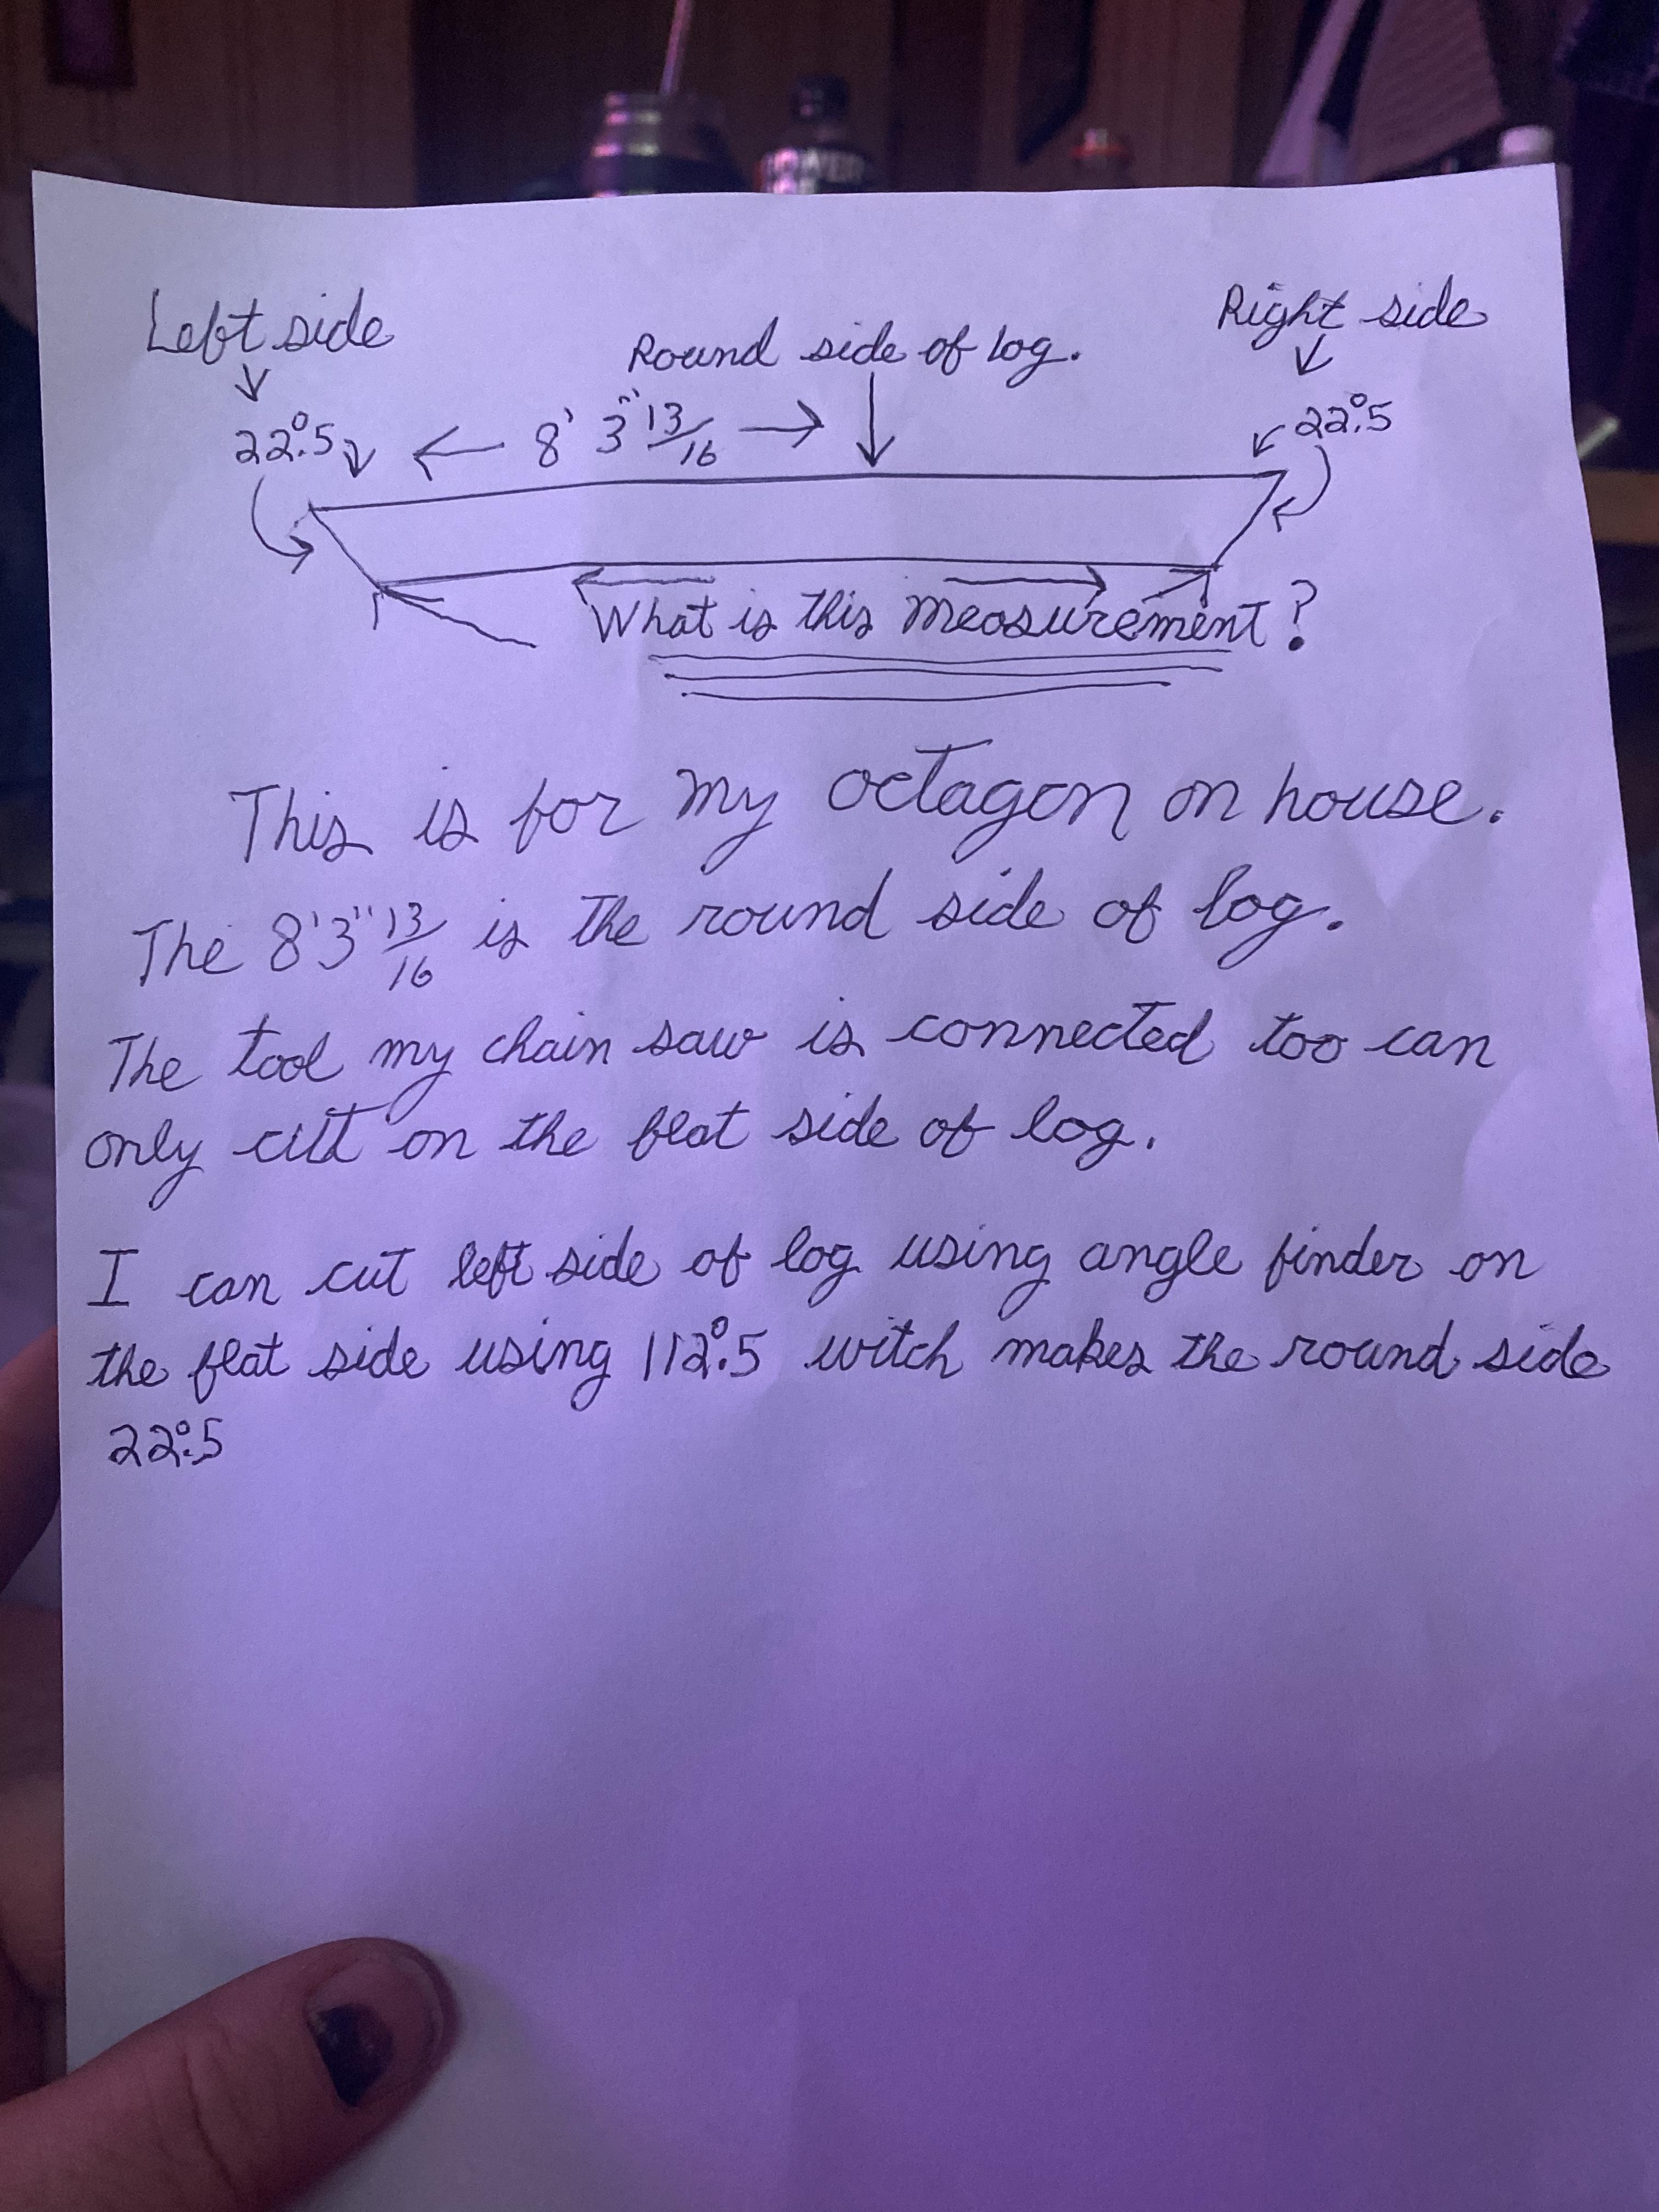 Left side
Right side
Round side of log.
22°.5
← 8' 3" 13/16 →
22°.5
What is this measurement?
This is for my octagon on house.
The 8'3" 13/16 is the round side of log.
The tool my chain saw is connected too can
only cut on the flat side of log.
I can cut left side of log using angle finder on
the flat side using 112°.5 witch makes the round side
22°.5